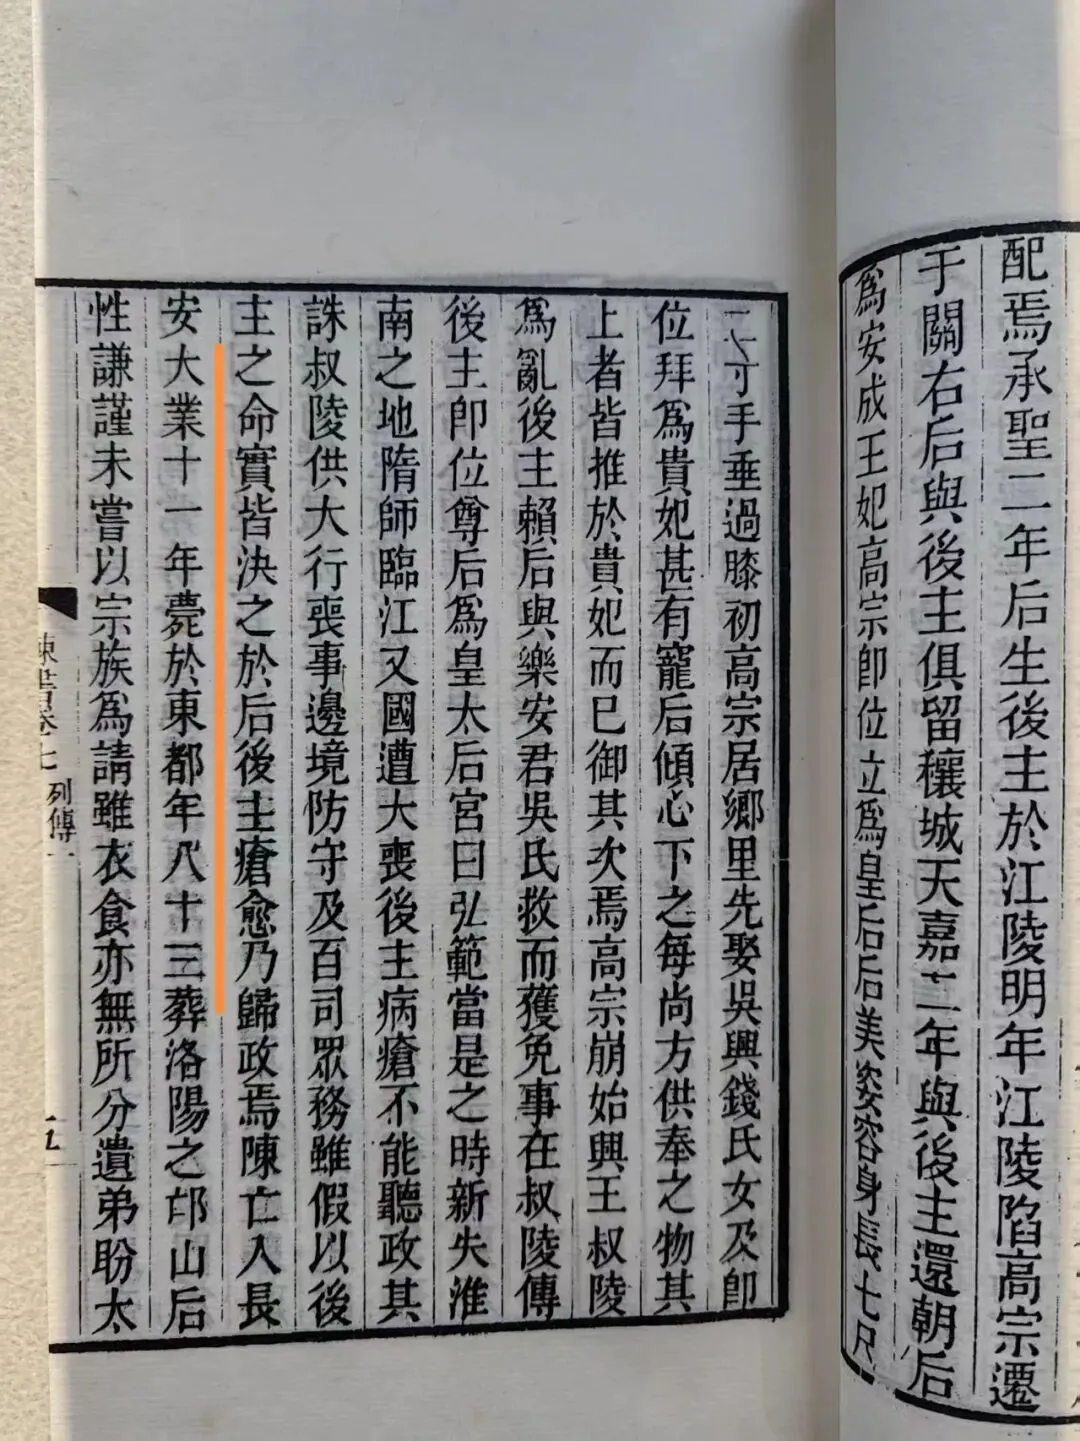 配焉承聖二年后生後主於江陵明年江陵陷高宗遷
于關右后與後主俱留穰城天嘉二年與後主還朝后
爲安成王妃高宗即位立爲皇后后美姿容身長七尺
二寸手垂過膝初高宗居鄉里先娶吳興錢氏女及即
位拜爲貴妃甚有寵后傾心下之每尚方供奉之物其
上者皆推於貴妃而已御其次焉高宗崩始興王叔陵
爲亂後主賴后與樂安君吳氏救而獲免事在叔陵傳
後主即位尊后爲皇太后宮曰弘範當是之時新失淮
南之地隋師臨江又國遭大喪後主病瘡不能聽政其
誅叔陵供大行喪事邊境防守及百司眾務雖假以後
主之命實皆決之於后後主瘡愈乃歸政焉陳亡入長
安大業十一年薨於東都年八十三葬洛陽之邙山后
性謙謹未嘗以宗族爲請雖衣食亦無所分遺弟盼太
陳書卷七
列傳一
五